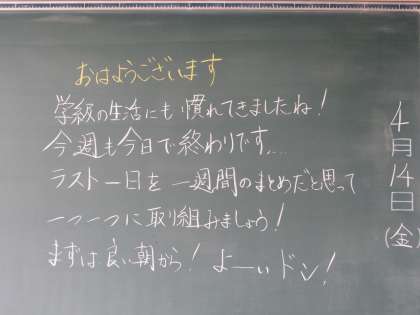 おはようございます
学級の生活にも慣れてきましたね!
今週も今日で終わりです....
ラスト一日を一週間のまとめだと思って
一つ一つに取り組みましょう!
まずは良い朝から!よーいドン!
4月14日(金)